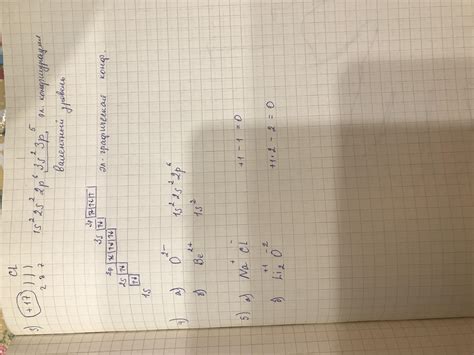 3) Cl
+17 ) ) )
2 8 7
1s² 2s² 2p⁶ 3s² 3p⁵ эл. конфигурация
валентный уровень
1s 2s 2p 3s 3p эл-графическая конф.
4) а) O²⁻ 1s² 2s² 2p⁶
б) Be²⁺ 1s²
5) а) Na⁺ Cl⁻ +1 - 1 = 0
б) Li₂⁺¹ O⁻² +1·2 - 2 = 0